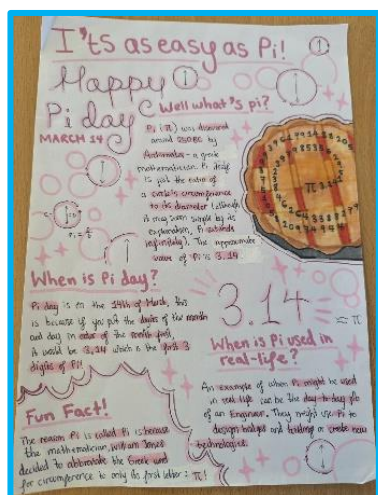 I'ts as easy as Pi!
Happy
Pi day
MARCH 14
Well what's pi?
Pi (π) was discovered
around 250BC by
Archimedes - a greek
mathematician. Pi itself
is just the ratio of
a circle's circumference
to its diameter (although
it may seem simple by its
explanation, Pi extends
infinitely). The approximate
value of Pi is 3.14
π 3.14
When is Pi day?
Pi day is on the 14th of March, this
is because if you put the digits of the month
and day in order of the month first,
it would be 3.14 which is the first 3
digits of Pi!
3.14
= π
When is Pi used in
real-life?
An example of when Pi might be used
in real life can be the day-to-day job
of an Engineer. They might use Pi to
design bridges and building or create new
technologies.
Fun Fact!
The reason Pi is called Pi is because
the mathematician, William Jones
decided to abbreviate the Greek word
for circumference to only its first letter: π!